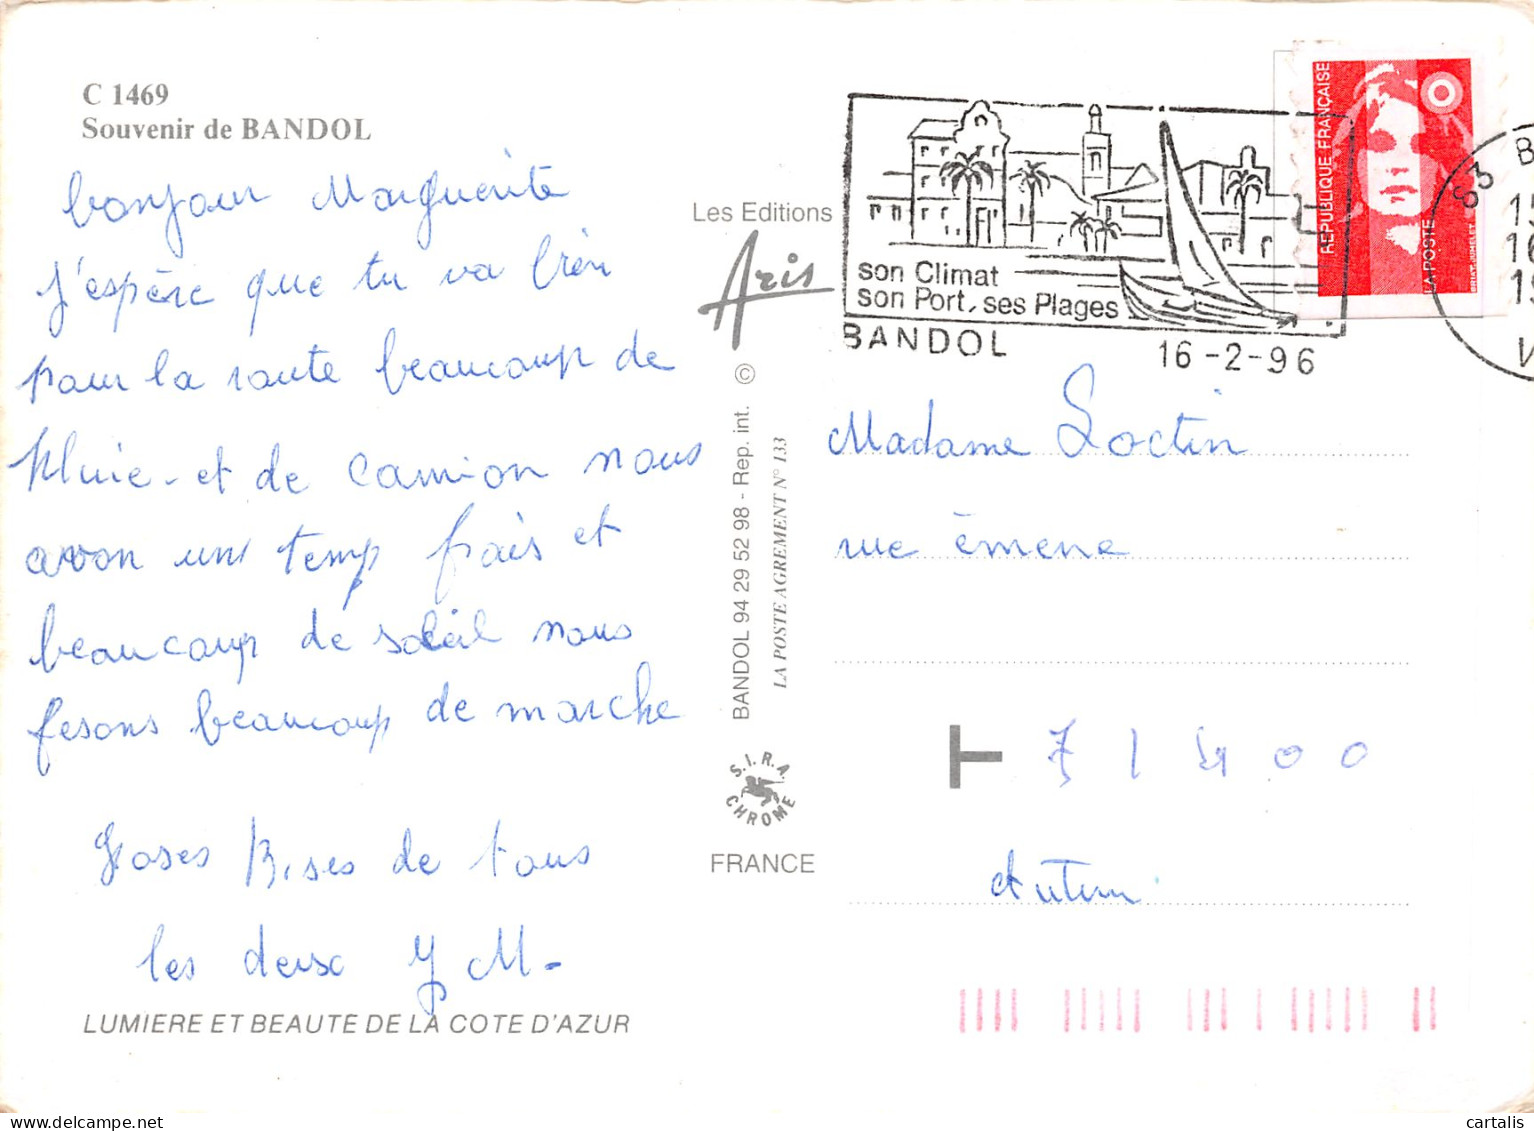 C 1469
Souvenir de BANDOL
bonjour Marguerite
j'espère que tu va bien
pour la route beaucoup de
pluie - et de camion nous
avon un temp frais et
beaucoup de soleil nous
fesons beaucoup de marche
Groses Bises de tous
les deux Y M-
LUMIERE ET BEAUTE DE LA COTE D'AZUR
Les Editions
Aris
BANDOL 94 29 52 98 - Rep. int. ©
LA POSTE AGREMENT N° 133
S.I.R.A.
CHROME
FRANCE
son Climat
son Port, ses Plages
BANDOL 16-2-96
REPUBLIQUE FRANÇAISE
LA POSTE
83 B
15
16
19
V
Madame Loctin
rue
T 71400
Autun
cartalis